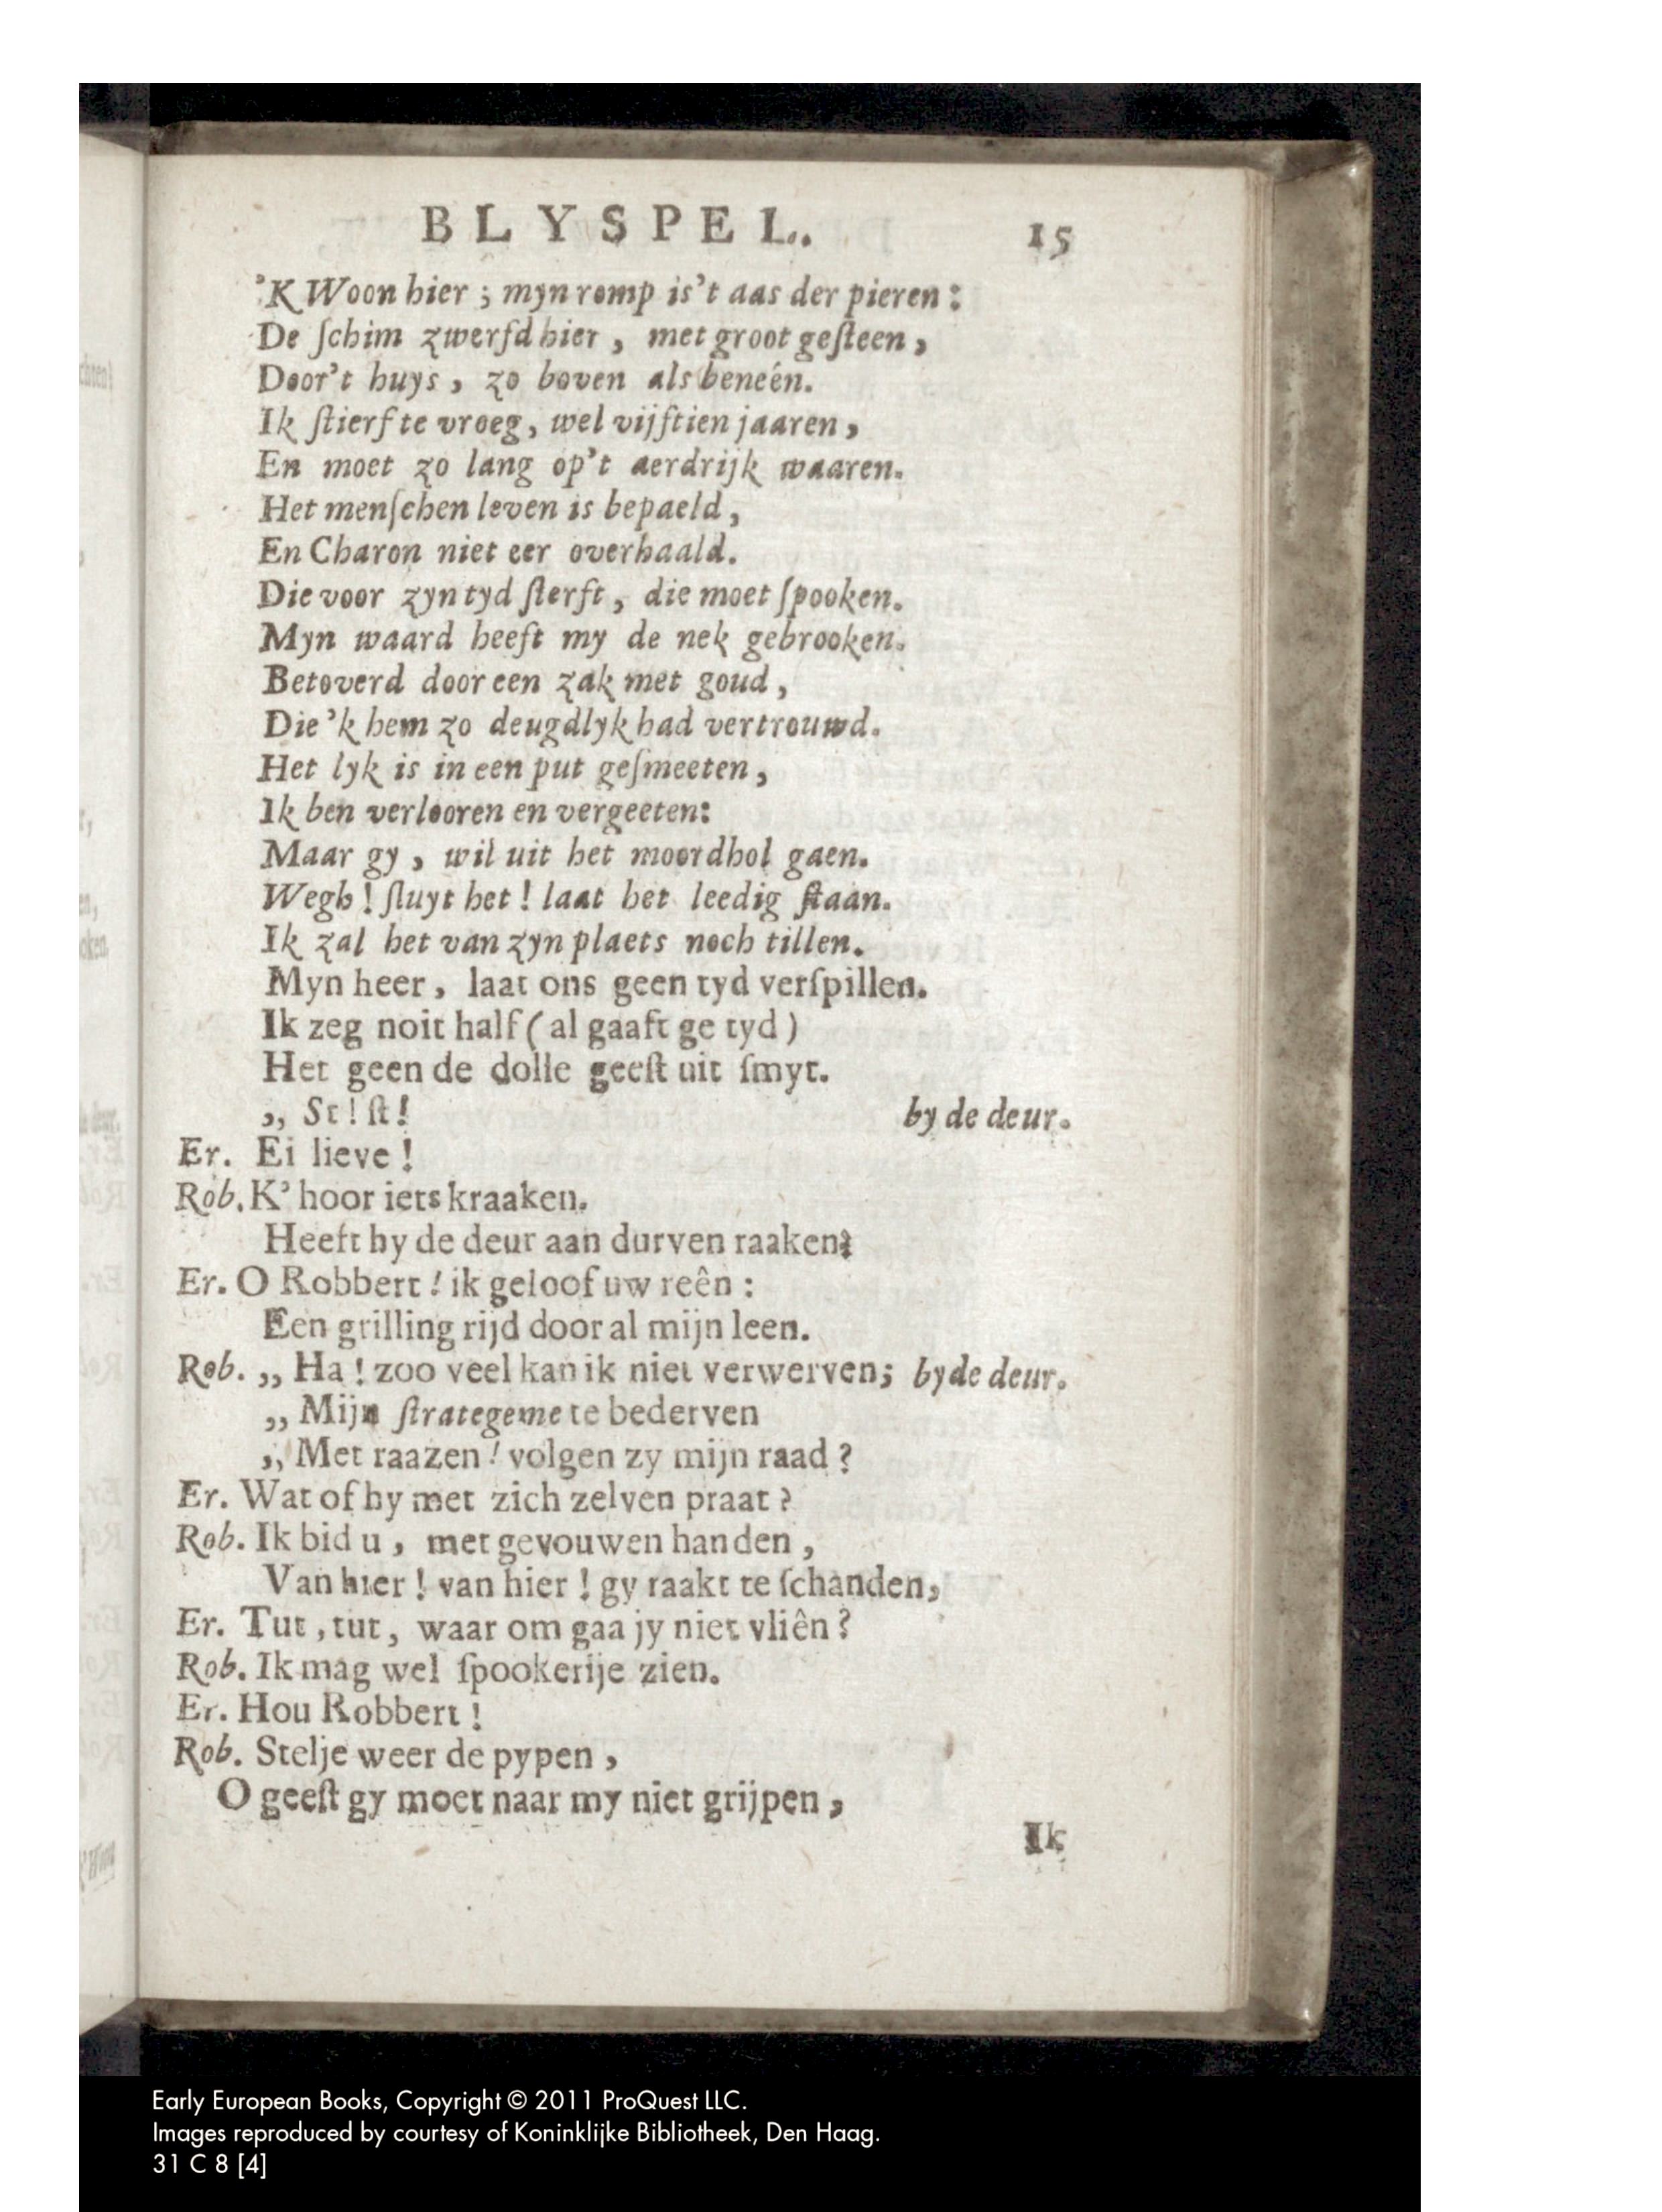 BLYSPEL. 15
'K Woon hier ; myn romp is't aas der pieren :
De ſchim zwerfd hier , met groot geſteen ,
Door't huys , zo boven als beneén.
Ik ſtierf te vroeg , wel vijftien jaaren ,
En moet zo lang op't aerdrijk waaren.
Het menſchen leven is bepaeld ,
En Charon niet eer overhaald.
Die voor zyn tyd ſterft , die moet ſpooken.
Myn waard heeft my de nek gebrooken.
Betoverd door een zak met goud ,
Die 'k hem zo deugdlyk had vertrouwd.
Het lyk is in een put geſmeeten ,
Ik ben verlooren en vergeeten:
Maar gy , wil uit het moordhol gaen.
Wegh ! ſluyt het ! laat het leedig ſtaan.
Ik zal het van zyn plaets noch tillen.
Myn heer , laat ons geen tyd verſpillen.
Ik zeg noit half ( al gaaft ge tyd )
Het geen de dolle geeſt uit ſmyt.
„ St ! ſt ! by de deur.
Er. Ei lieve !
Rob. K' hoor iets kraaken.
Heeft hy de deur aan durven raaken?
Er. O Robbert ! ik geloof uw reên :
Een grilling rijd door al mijn leen.
Rob. „ Ha ! zoo veel kan ik niet verwerven; by de deur.
„ Mijn ſtrategeme te bederven
„ Met raazen ! volgen zy mijn raad ?
Er. Wat of hy met zich zelven praat ?
Rob. Ik bid u , met gevouwen handen ,
Van hier ! van hier ! gy raakt te ſchanden,
Er. Tut , tut , waar om gaa jy niet vliên ?
Rob. Ik mag wel ſpookerije zien.
Er. Hou Robbert !
Rob. Stelje weer de pypen ,
O geeſt gy moet naar my niet grijpen ,
Ik
Early European Books, Copyright © 2011 ProQuest LLC.
Images reproduced by courtesy of Koninklijke Bibliotheek, Den Haag.
31 C 8 [4]